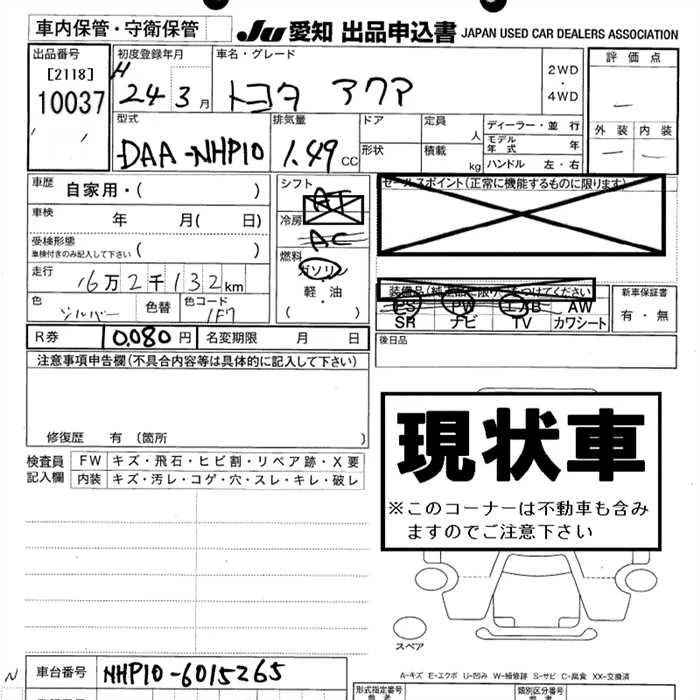 車内保管・守衛保管
JU 愛知 出品申込書 JAPAN USED CAR DEALERS ASSOCIATION
出品番号
[2118]
10037
初度登録年月
H 24 3 月
車名・グレード
トヨタ アクア
2WD
・
4WD
評価点
—
外装 内装
— —
型式
DAA-NHP10
排気量
1.49 CC
ドア
定員 人
形状
積載 kg
ディーラー・並行
モデル年式 年
ハンドル 左・右
車歴 自家用・( )
車検 年 月( 日)
受検形態
車検付きのみ記入して下さい ( )
走行 16万2千132km
色 シルバー 色替 色コード 1F7
シフト AT
冷房 AC
燃料
ガソリン
軽・油
( )
セールスポイント(正常に機能するものに限ります)
装備品(純正品に限り○をつけてください
PS PW エアB AW
SR ナビ TV カワシート
新車保証書
有・無
R券 10,080円 名変期限 月 日
後日品
注意事項申告欄(不具合内容等は具体的に記入して下さい)
修復歴 有 (箇所 )
検査員記入欄
FW キズ・飛石・ヒビ割・リペア跡・X要
内装 キズ・汚レ・コゲ・穴・スレ・キレ・破レ
現状車
※このコーナーは不動車も含み
ますのでご注意下さい
スペア
A-キズ E-エクボ U-凹み W-補修跡 S-サビ C-腐食 XX-交換済
N
車台番号 NHP10-6015265
形式指定番号
類別区分番号